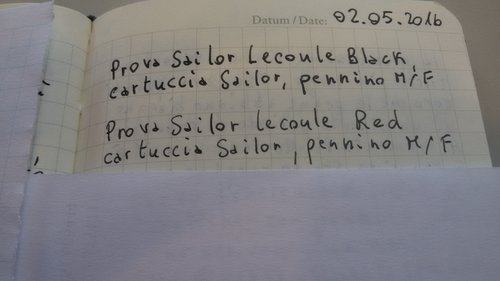 Datum / Date: 02.05.2016
Prova Sailor Lecoule Black,
cartuccia Sailor, pennino M/F
Prova Sailor lecoule Red
cartuccia Sailor, pennino M/F